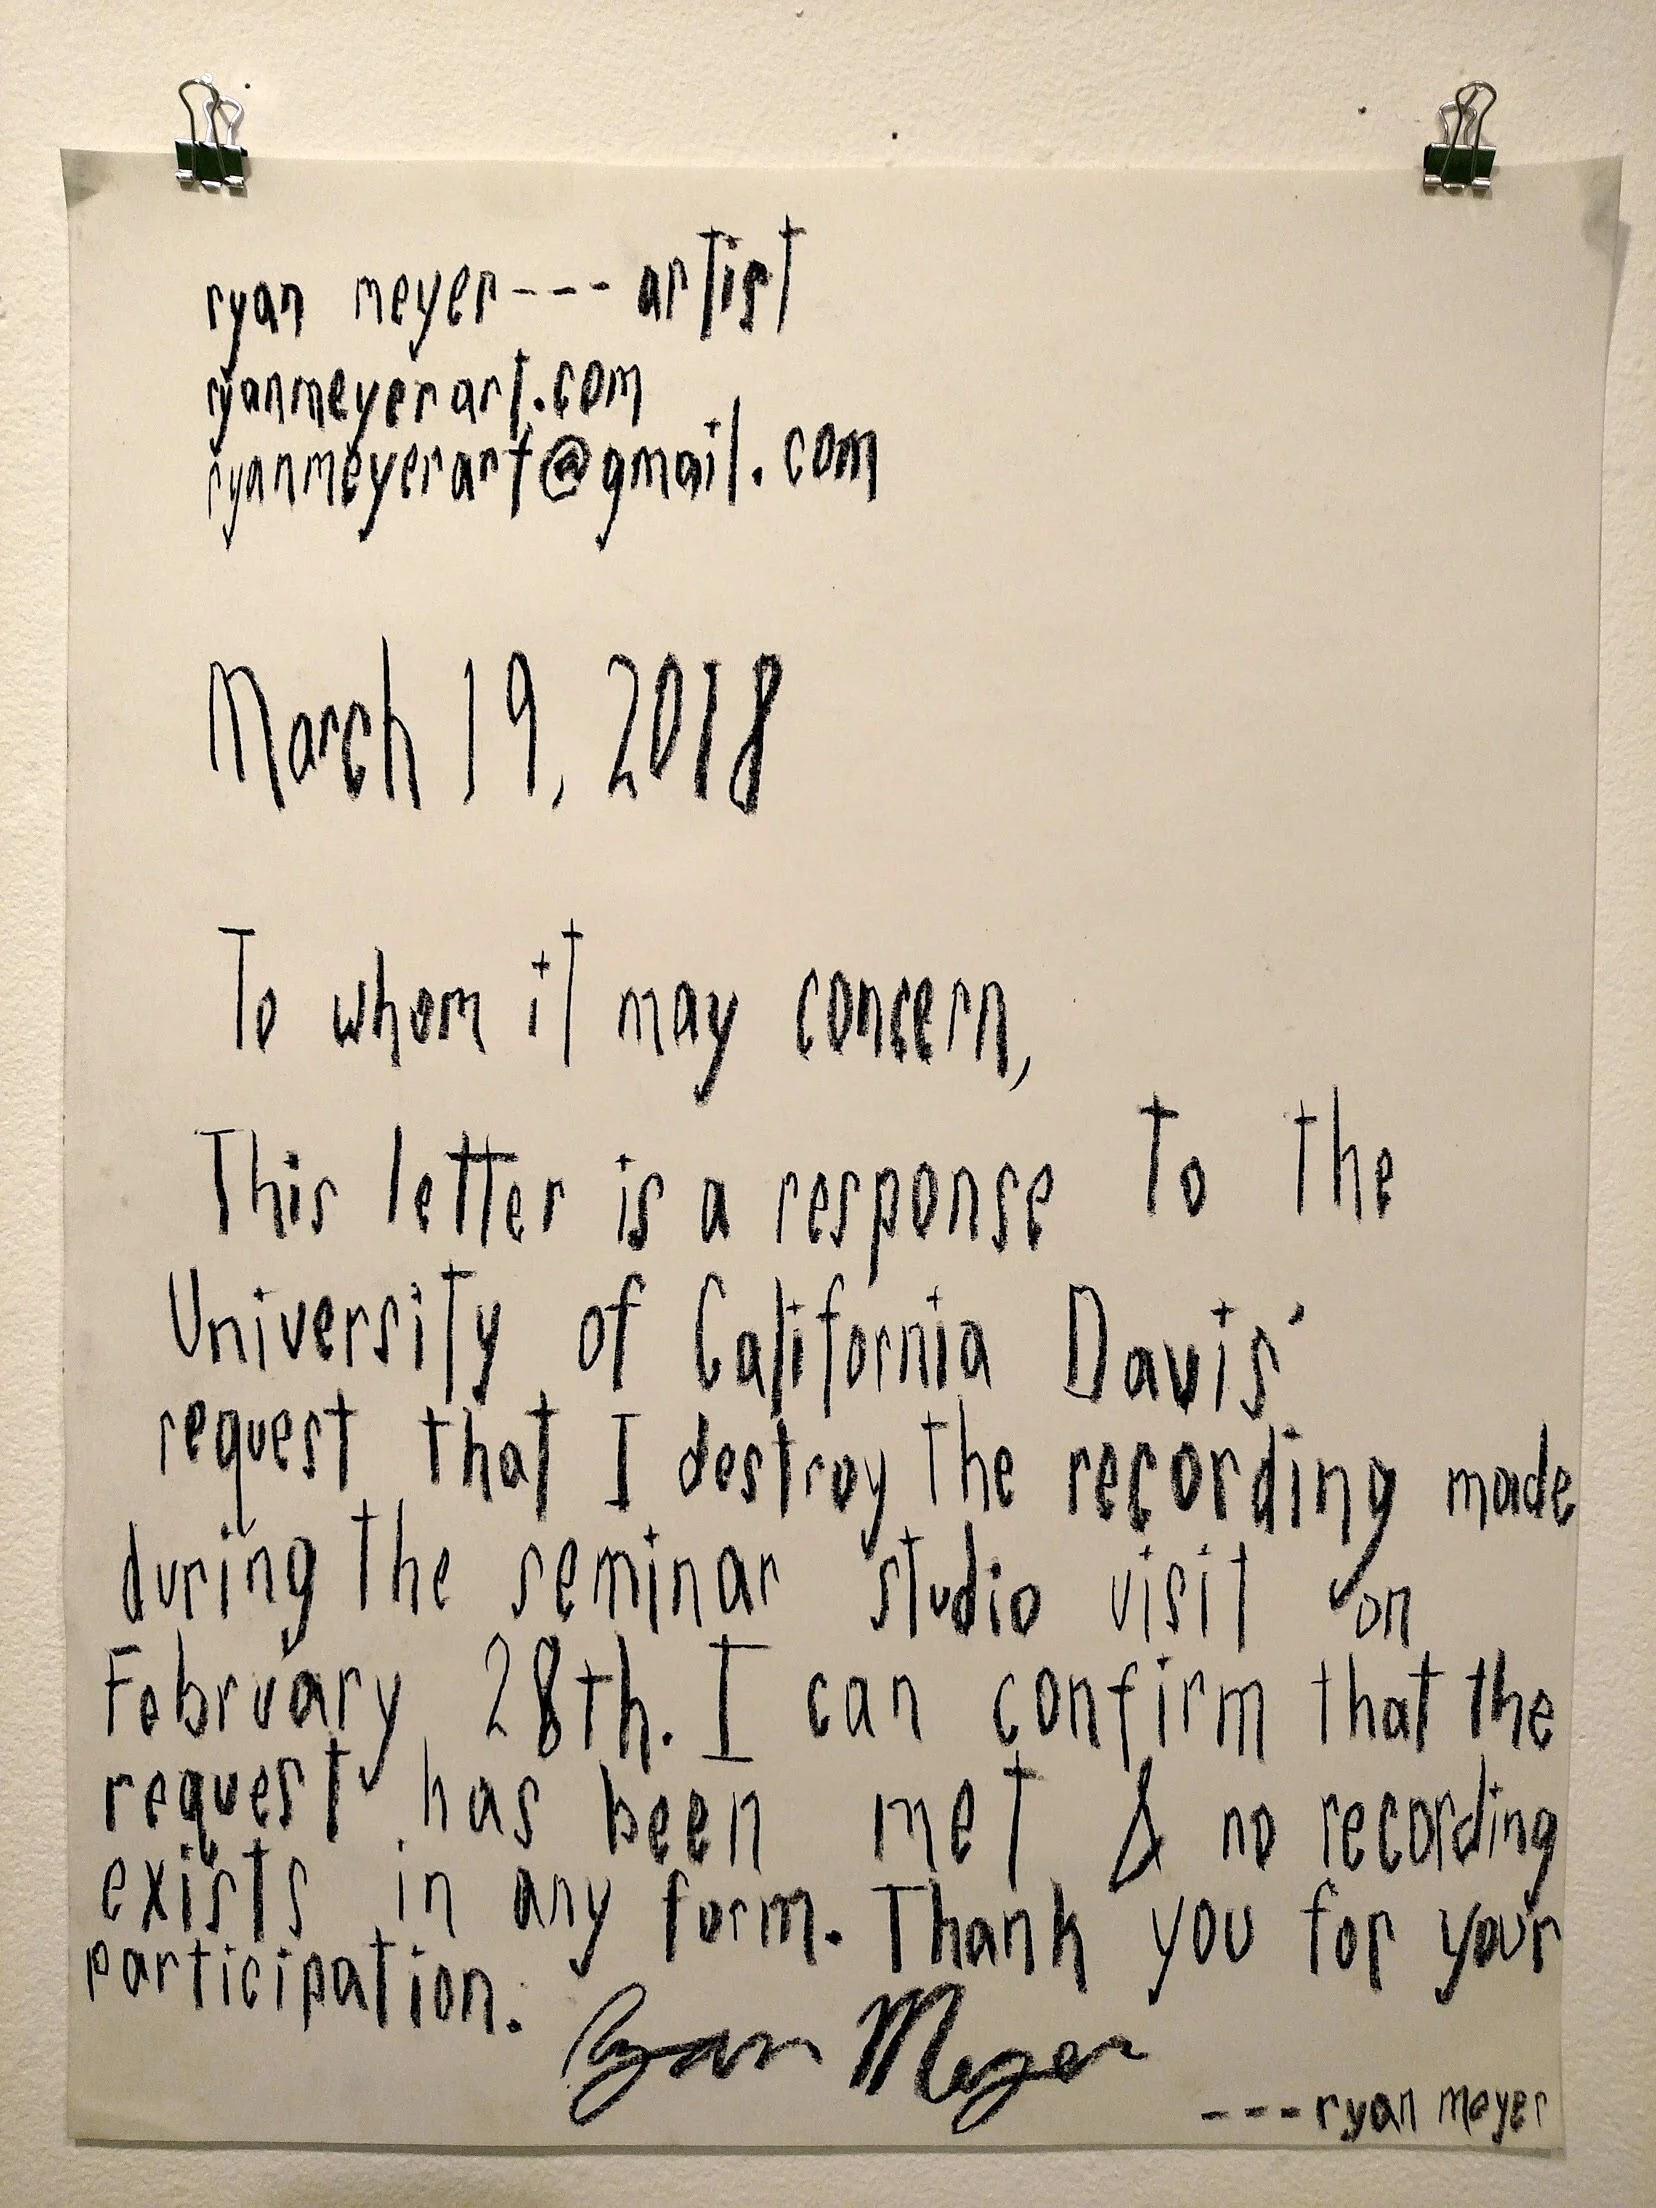 ryan meyer--- artist
ryanmeyerart.com
ryanmeyerart@gmail.com
March 19, 2018
To whom it may concern,
This letter is a response to the
University of California Davis'
request that I destroy the recording made
during the seminar studio visit on
February 28th. I can confirm that the
request has been met & no recording
exists in any form. Thank you for your
participation.
Ryan Meyer
---ryan meyer